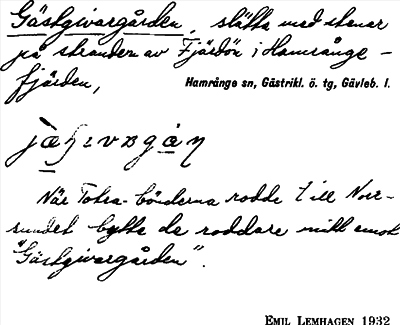 Gästgivargården, slätta med stenar
på stranden av Fjärdön i Hamrånge-
fjärden,
Hamrånge sn, Gästrikl. ö. tg, Gävleb. l.
När Totra-bönderna rodde till Norr-
sundet bytte de roddare mitt emot
"Gästgivargården".
EMIL LEMHAGEN 1932